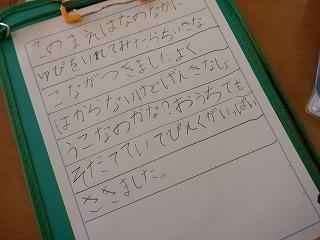 このまえはなのなかに
ゆびをいれてみたらちいさな
こながつきましたよく
はからないけとげんきなしょ
うこなのかな?おうちでも
そだてていてぴんくがいっぱい
さきました。